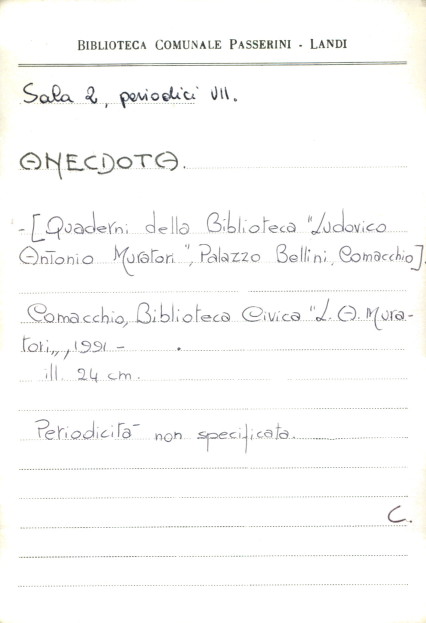 BIBLIOTECA COMUNALE PASSERINI - LANDI
Sala 2, periodici VII.
ANECDOTA.
-[Quaderni della Biblioteca "Ludovico
Antonio Muratori", Palazzo Bellini, Comacchio].
Comacchio, Biblioteca Civica "L. A. Mura-
tori", 1991 -
ill. 24 cm.
Periodicità non specificata.
C.